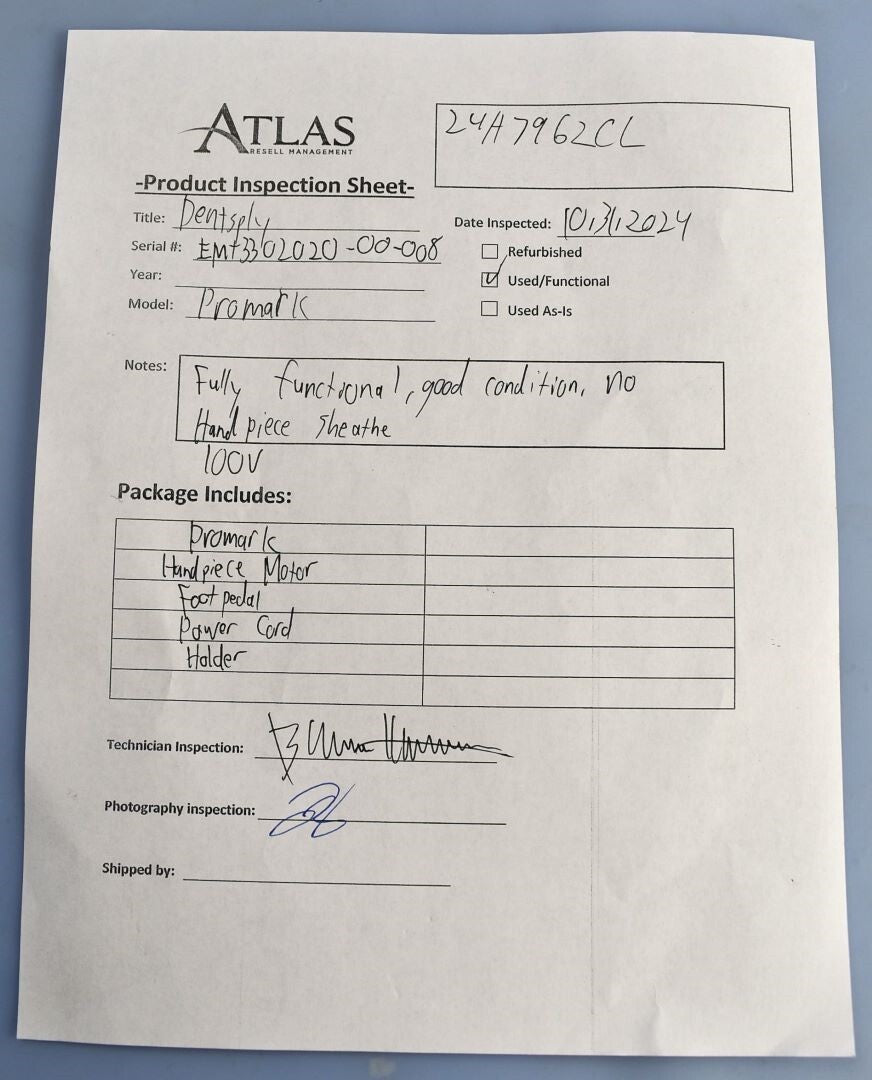 ATLAS
RESELL MANAGEMENT
24A7962CL
-Product Inspection Sheet-
Title: Dentsply
Date Inspected: 10/31/2024
Serial #: EMt3302020-00-008
Refurbished
Year:
Used/Functional
Model: Promark
Used As-Is
Notes: Fully functional, good condition, no
Handpiece sheathe
100V
Package Includes:
Promark
Handpiece Motor
Footpedal
Power Cord
Holder
Technician Inspection:
Photography inspection:
Shipped by: